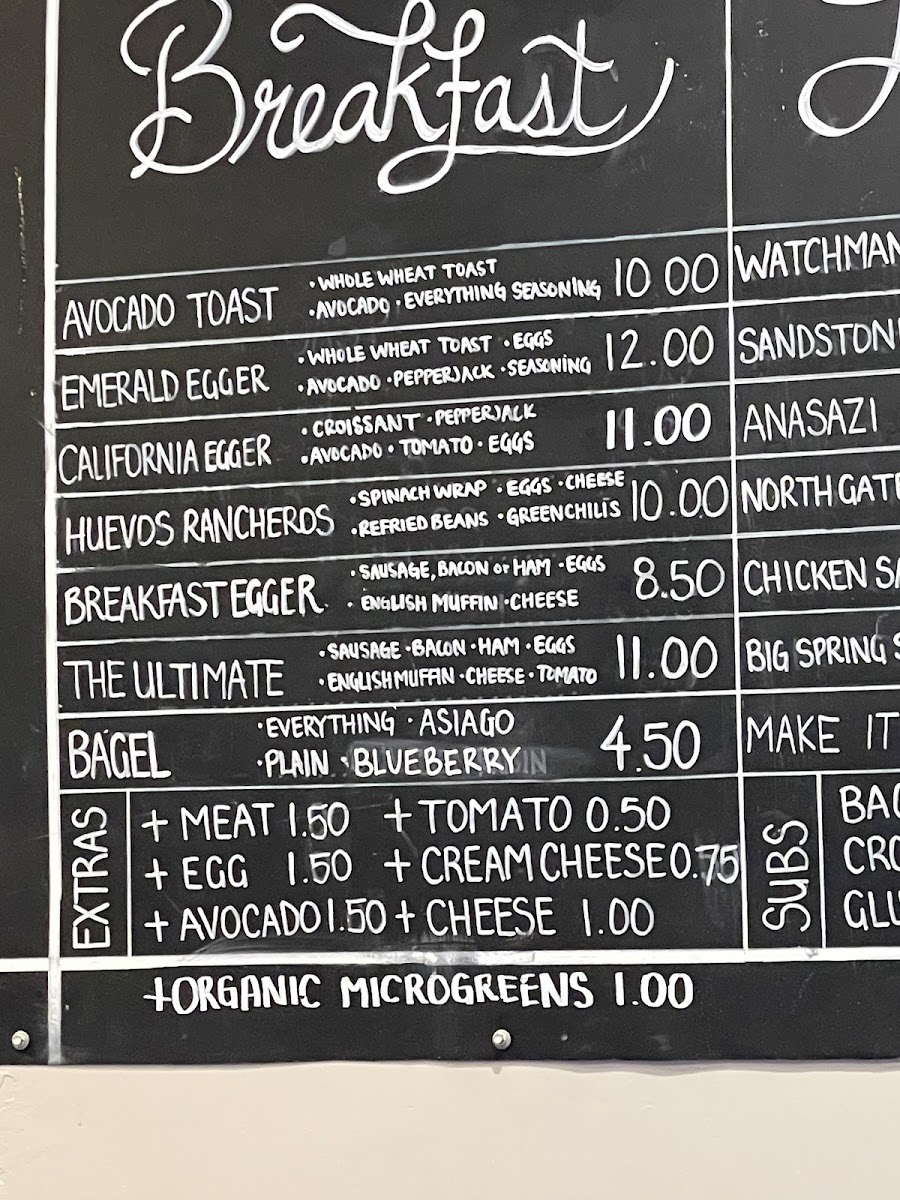 Breakfast
AVOCADO TOAST • WHOLE WHEAT TOAST
• AVOCADO • EVERYTHING SEASONING 10 00
EMERALD EGGER • WHOLE WHEAT TOAST • EGGS
• AVOCADO • PEPPERJACK • SEASONING 12.00
CALIFORNIA EGGER • CROISSANT • PEPPERJACK
• AVOCADO • TOMATO • EGGS 11.00
HUEVOS RANCHEROS • SPINACH WRAP • EGGS • CHEESE
• REFRIED BEANS • GREEN CHILIS 10.00
BREAKFAST EGGER • SAUSAGE, BACON or HAM • EGGS
• ENGLISH MUFFIN • CHEESE 8.50
THE ULTIMATE • SAUSAGE • BACON • HAM • EGGS
• ENGLISH MUFFIN • CHEESE • TOMATO 11.00
BAGEL • EVERYTHING • ASIAGO
• PLAIN • BLUEBERRY 4.50
EXTRAS
+ MEAT 1.50 + TOMATO 0.50
+ EGG 1.50 + CREAM CHEESE 0.75
+ AVOCADO 1.50 + CHEESE 1.00
+ORGANIC MICROGREENS 1.00
WATCHMAN
ANASAZI
CHICKEN
BIG SPRING
MAKE IT
SUBS